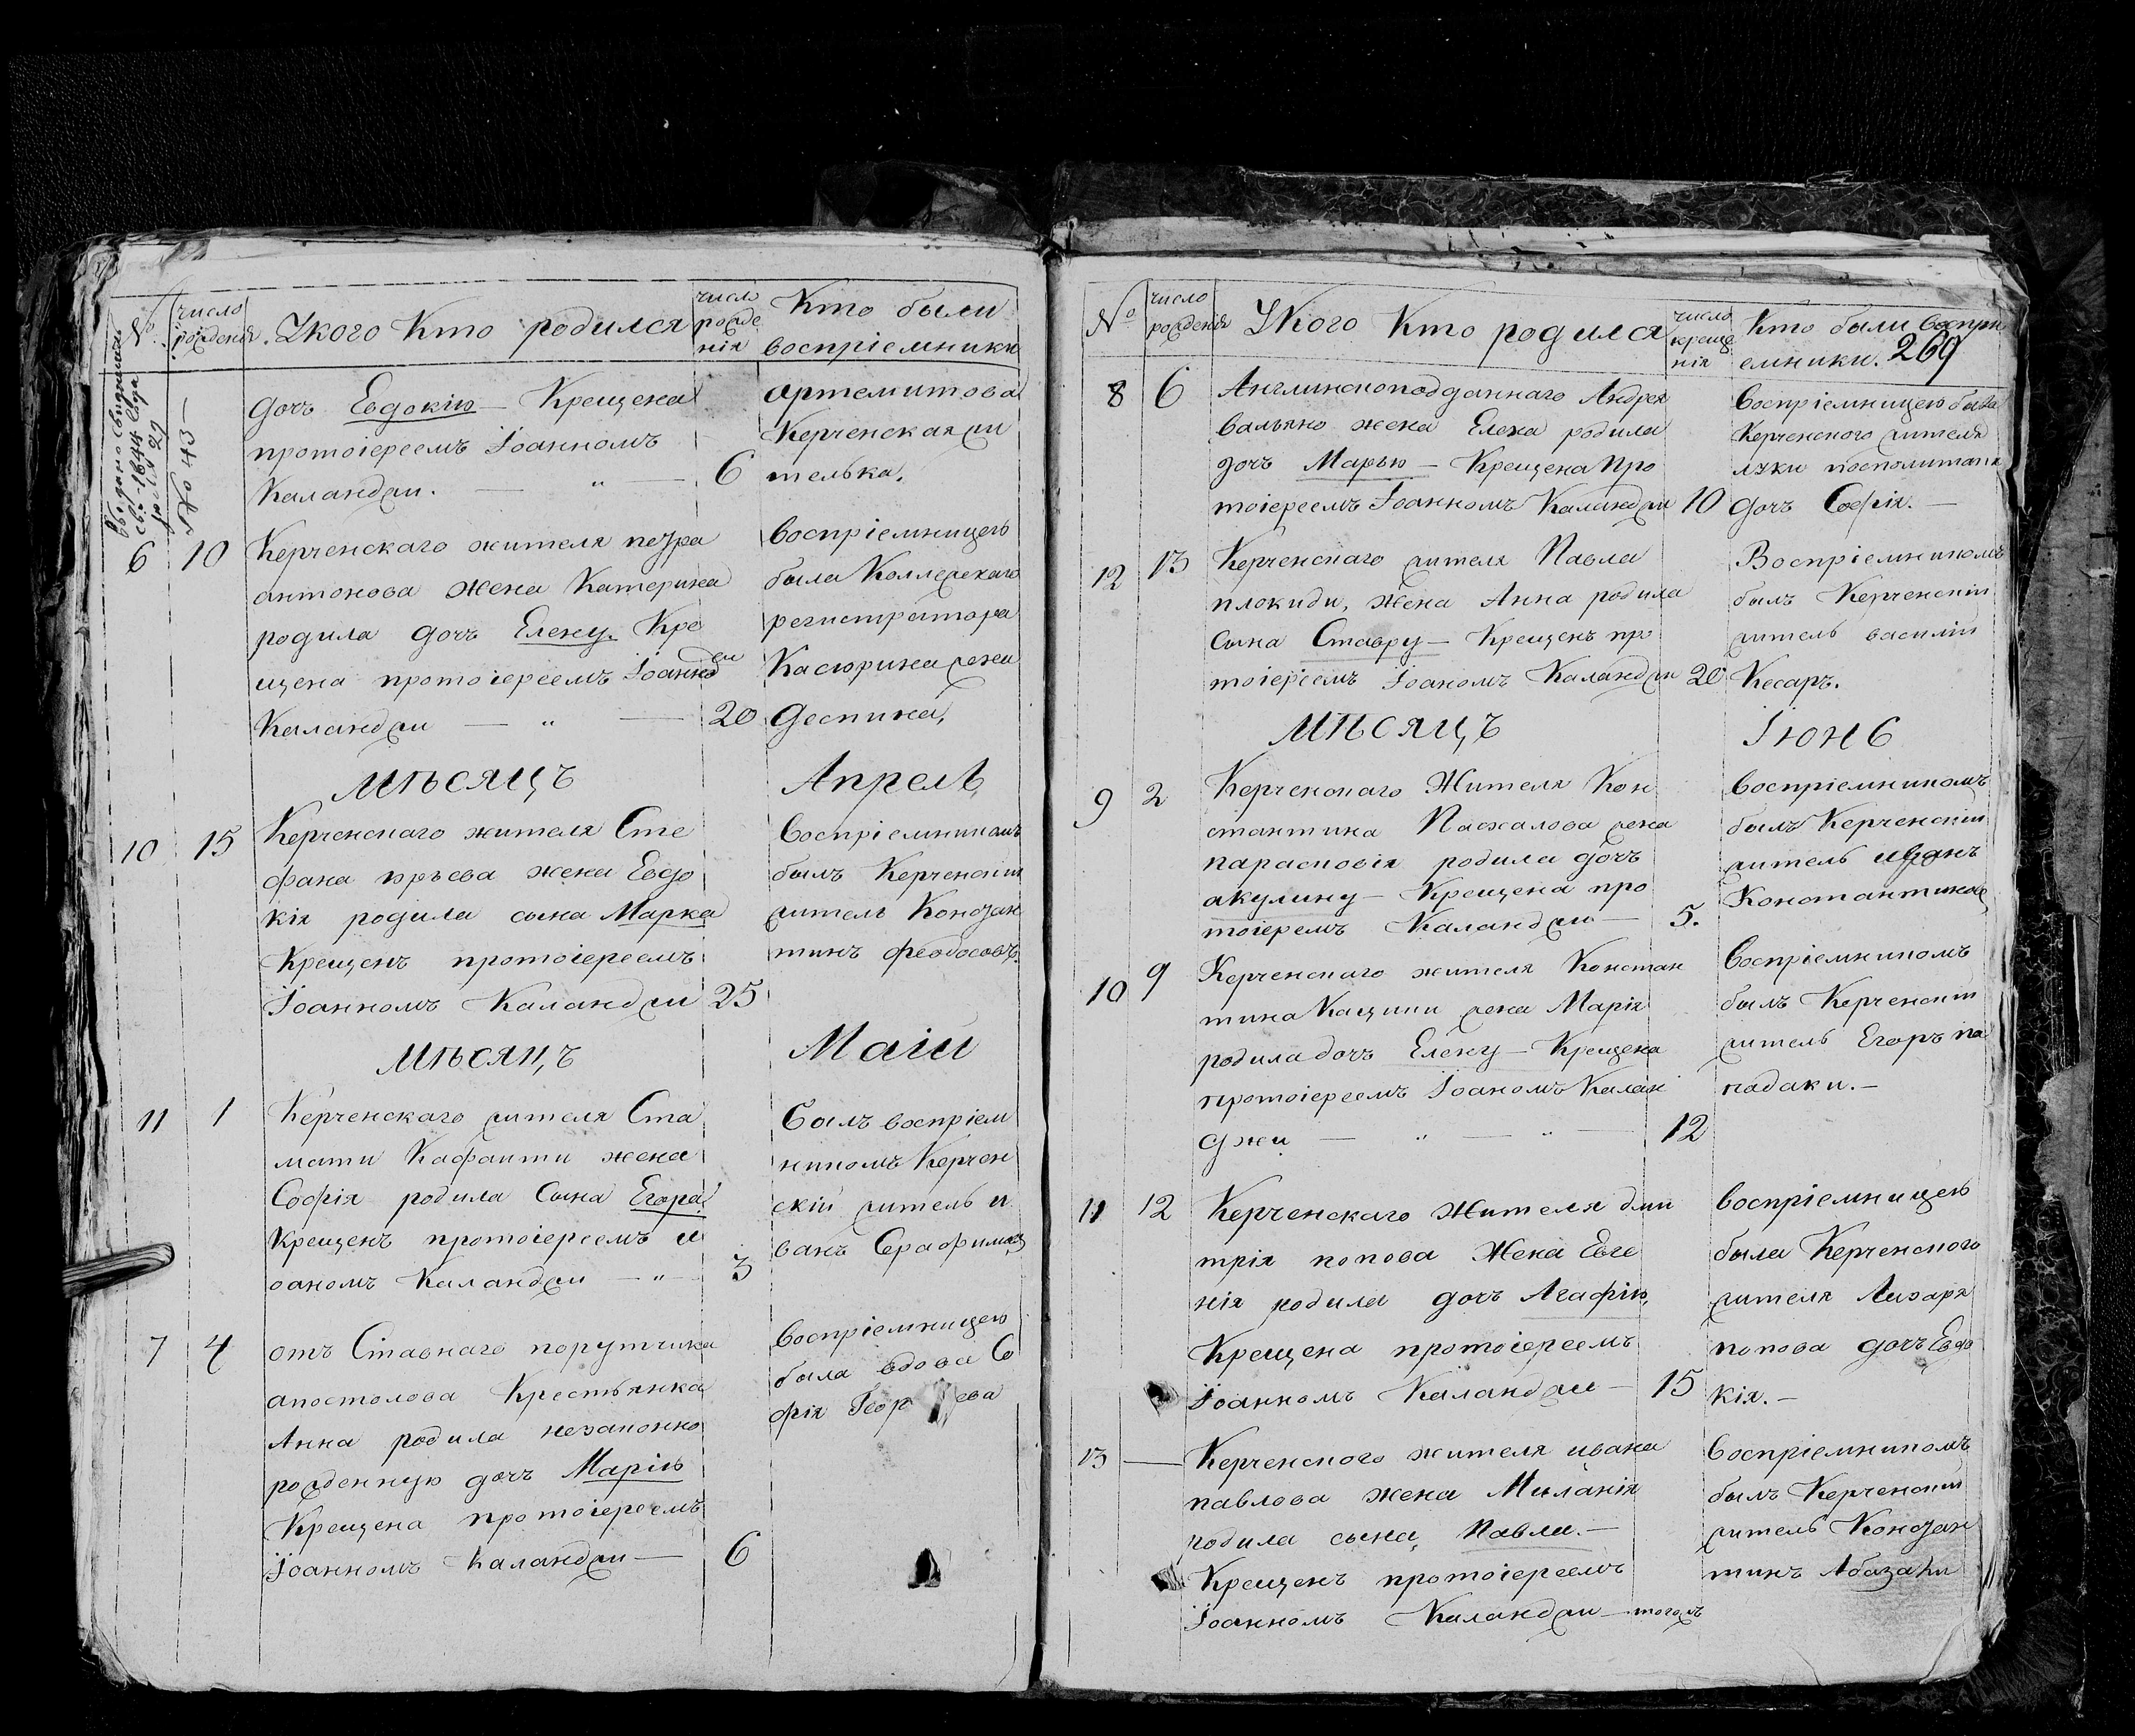 №
число
рожденія.
Укого Кто родился
число
рожде
нія
Кто были
воспріемники
Выдано свидѣтель
№ 43 —
дочъ Евдокію — Крещена
протоіереемъ Іоанномъ
Каланджи. — " — 6
артемитова
Керченская жи
телька.
6 10
Керченскаго жителя петра
антонова жена Катерина
родила дочъ Елену. Кре
щена протоіереемъ Іоанно
Каланджи — " — 20
воспріемницею
была Коллежскаго
регистратора
Касюрина жена
деспина,
мѣсяцъ Апрель
10 15
Керченскаго жителя Сте
фана
жена Евдо
кія родила сына Марка
Крещенъ протоіереемъ
Іоанномъ Каланджи 25
воспріемникомъ
былъ Керченскій
житель Констан
тинъ феодосовъ.
мѣсяцъ Маій
11 1
Керченскаго жителя Ста
мати Кафаити жена
Софія родила Сына Егора
крещенъ протоіереемъ и
оаномъ Каланджи — " — 3
былъ воспріем
никомъ Керчен
скій житель и
ванъ Серафимовъ
7 4
отъ Ставнаго порутчика
апостолова Крестьянка
Анна родила незаконно
рожденную дочъ Марію
Крещена протоіереемъ
Іоанномъ Каланджи — 6
воспріемницею
была вдова Со
фія Геор ева
№
число
рожденія
Укого Кто родился
число
креще
нія
Кто были воспри
емники. 269
8 6
Англинскоподданнаго Андрея
вальяно жена Елена родила
дочъ Марью — Крещена Про
тоіереемъ Іоанномъ Каланджи 10
воспріемницею была
Керченского жителя
дочъ Софія. —
12 13
Керченскаго жителя Павла
плокиди, жена Анна родила
Сына Ставру — Крещенъ про
тоіереемъ Іоаномъ Каланджи 20
Воспріемникомъ
былъ Керченскій
житель василій
Кесаръ.
мѣсяцъ Іюнь
9 2
Керченскаго Жителя Кон
стантина Пасхалова жена
парасковія родила дочъ
акулину — Крещена про
тоіеремъ Каланджи — 5.
воспріемникомъ
былъ Керченскій
житель иванъ
Константиновъ
10 9
Керченскаго жителя Констан
тина Кацики жена Марія
родила дочъ Елену — Крещена
протоіереемъ Іоаномъ Калан
джи — " — " — 12
воспріемникомъ
былъ Керченскій
житель Егоръ па
падаки. —
11 12
Керченскаго Жителя дми
трія попова Жена Евге
нія родила дочъ Агафію,
Крещена протоіереемъ
Іоанномъ Каланджи — 15
воспріемницею
была Керченского
жителя Лазаря
попова дочъ Евдо
кія. —
13 —
Керченского жителя ивана
павлова жена Миланія
родила сына Павла. —
Крещенъ протоіереемъ
Іоанномъ Каланджи — тогожъ
воспріемникомъ
былъ Керченскій
житель Констан
тинъ Абазаки